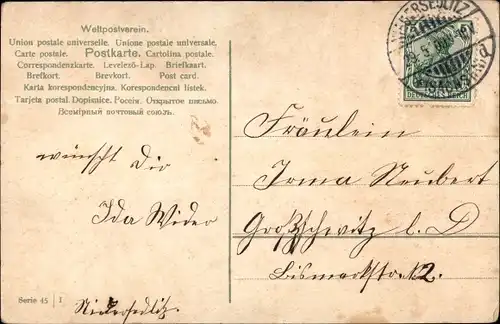 Weltpostverein.
Union postale universelle. Unione postale universale.
Carte postale. Postkarte. Cartolina postale.
Correspondenzkarte. Levelező-Lap. Briefkaart.
Brefkort. Brevkort. Post card.
Karta korespondencyjna. Korespondenci listek.
Tarjeta postal. Dopisnice. Россія. Открытое письмо.
Всемірный почтовый союзъ.
wünscht Dir
Ida Wider
Niedersedlitz.
Serie 45 I
NIEDERSEDLITZ
Fräulein
Irma Neubert
Großzschewitz b. D
Bismarkstr. 12.